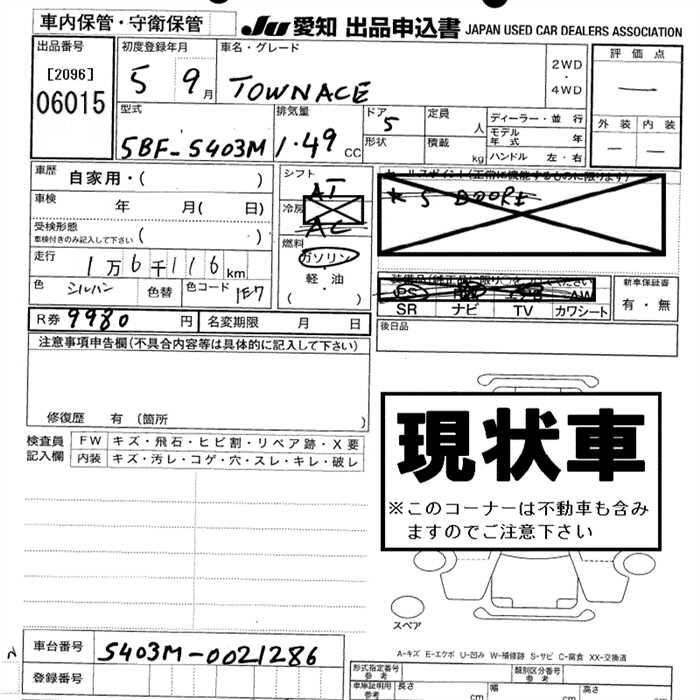 車内保管・守衛保管
JU 愛知 出品申込書 JAPAN USED CAR DEALERS ASSOCIATION
出品番号
[2096]
06015
初度登録年月
5 9月
車名・グレード
TOWNACE
2WD
・
4WD
評価点
―
外装 内装
― ―
型式
5BF-S403M
排気量
1.49 CC
ドア
5
形状
定員
人
積載
kg
ディーラー・並行
モデル年式 年
ハンドル 左・右
車歴
自家用・( )
車検
年 月( 日)
受検形態
車検付きのみ記入して下さい ( )
走行
1万6千116km
色 シルバー 色替 色コード 1E7
シフト
AT
冷房
AC
燃料
ガソリン
軽・油
( )
* 5 DOORE
SR ナビ TV カワシート
新車保証書
有・無
後日品
R券 9980 円 名変期限 月 日
注意事項申告欄(不具合内容等は具体的に記入して下さい)
修復歴 有 (箇所 )
検査員
記入欄
FW キズ・飛石・ヒビ割・リペア跡・X要
内装 キズ・汚レ・コゲ・穴・スレ・キレ・破レ
現状車
※このコーナーは不動車も含み
ますのでご注意下さい
スペア
A-キズ E-エクボ U-凹み W-補修跡 S-サビ C-腐食 XX-交換済
車台番号 S403M-0021286
登録番号
形式指定番号
参考
類別区分番号
参考
車庫証明用
参考
長さ cm
幅 cm
高さ cm